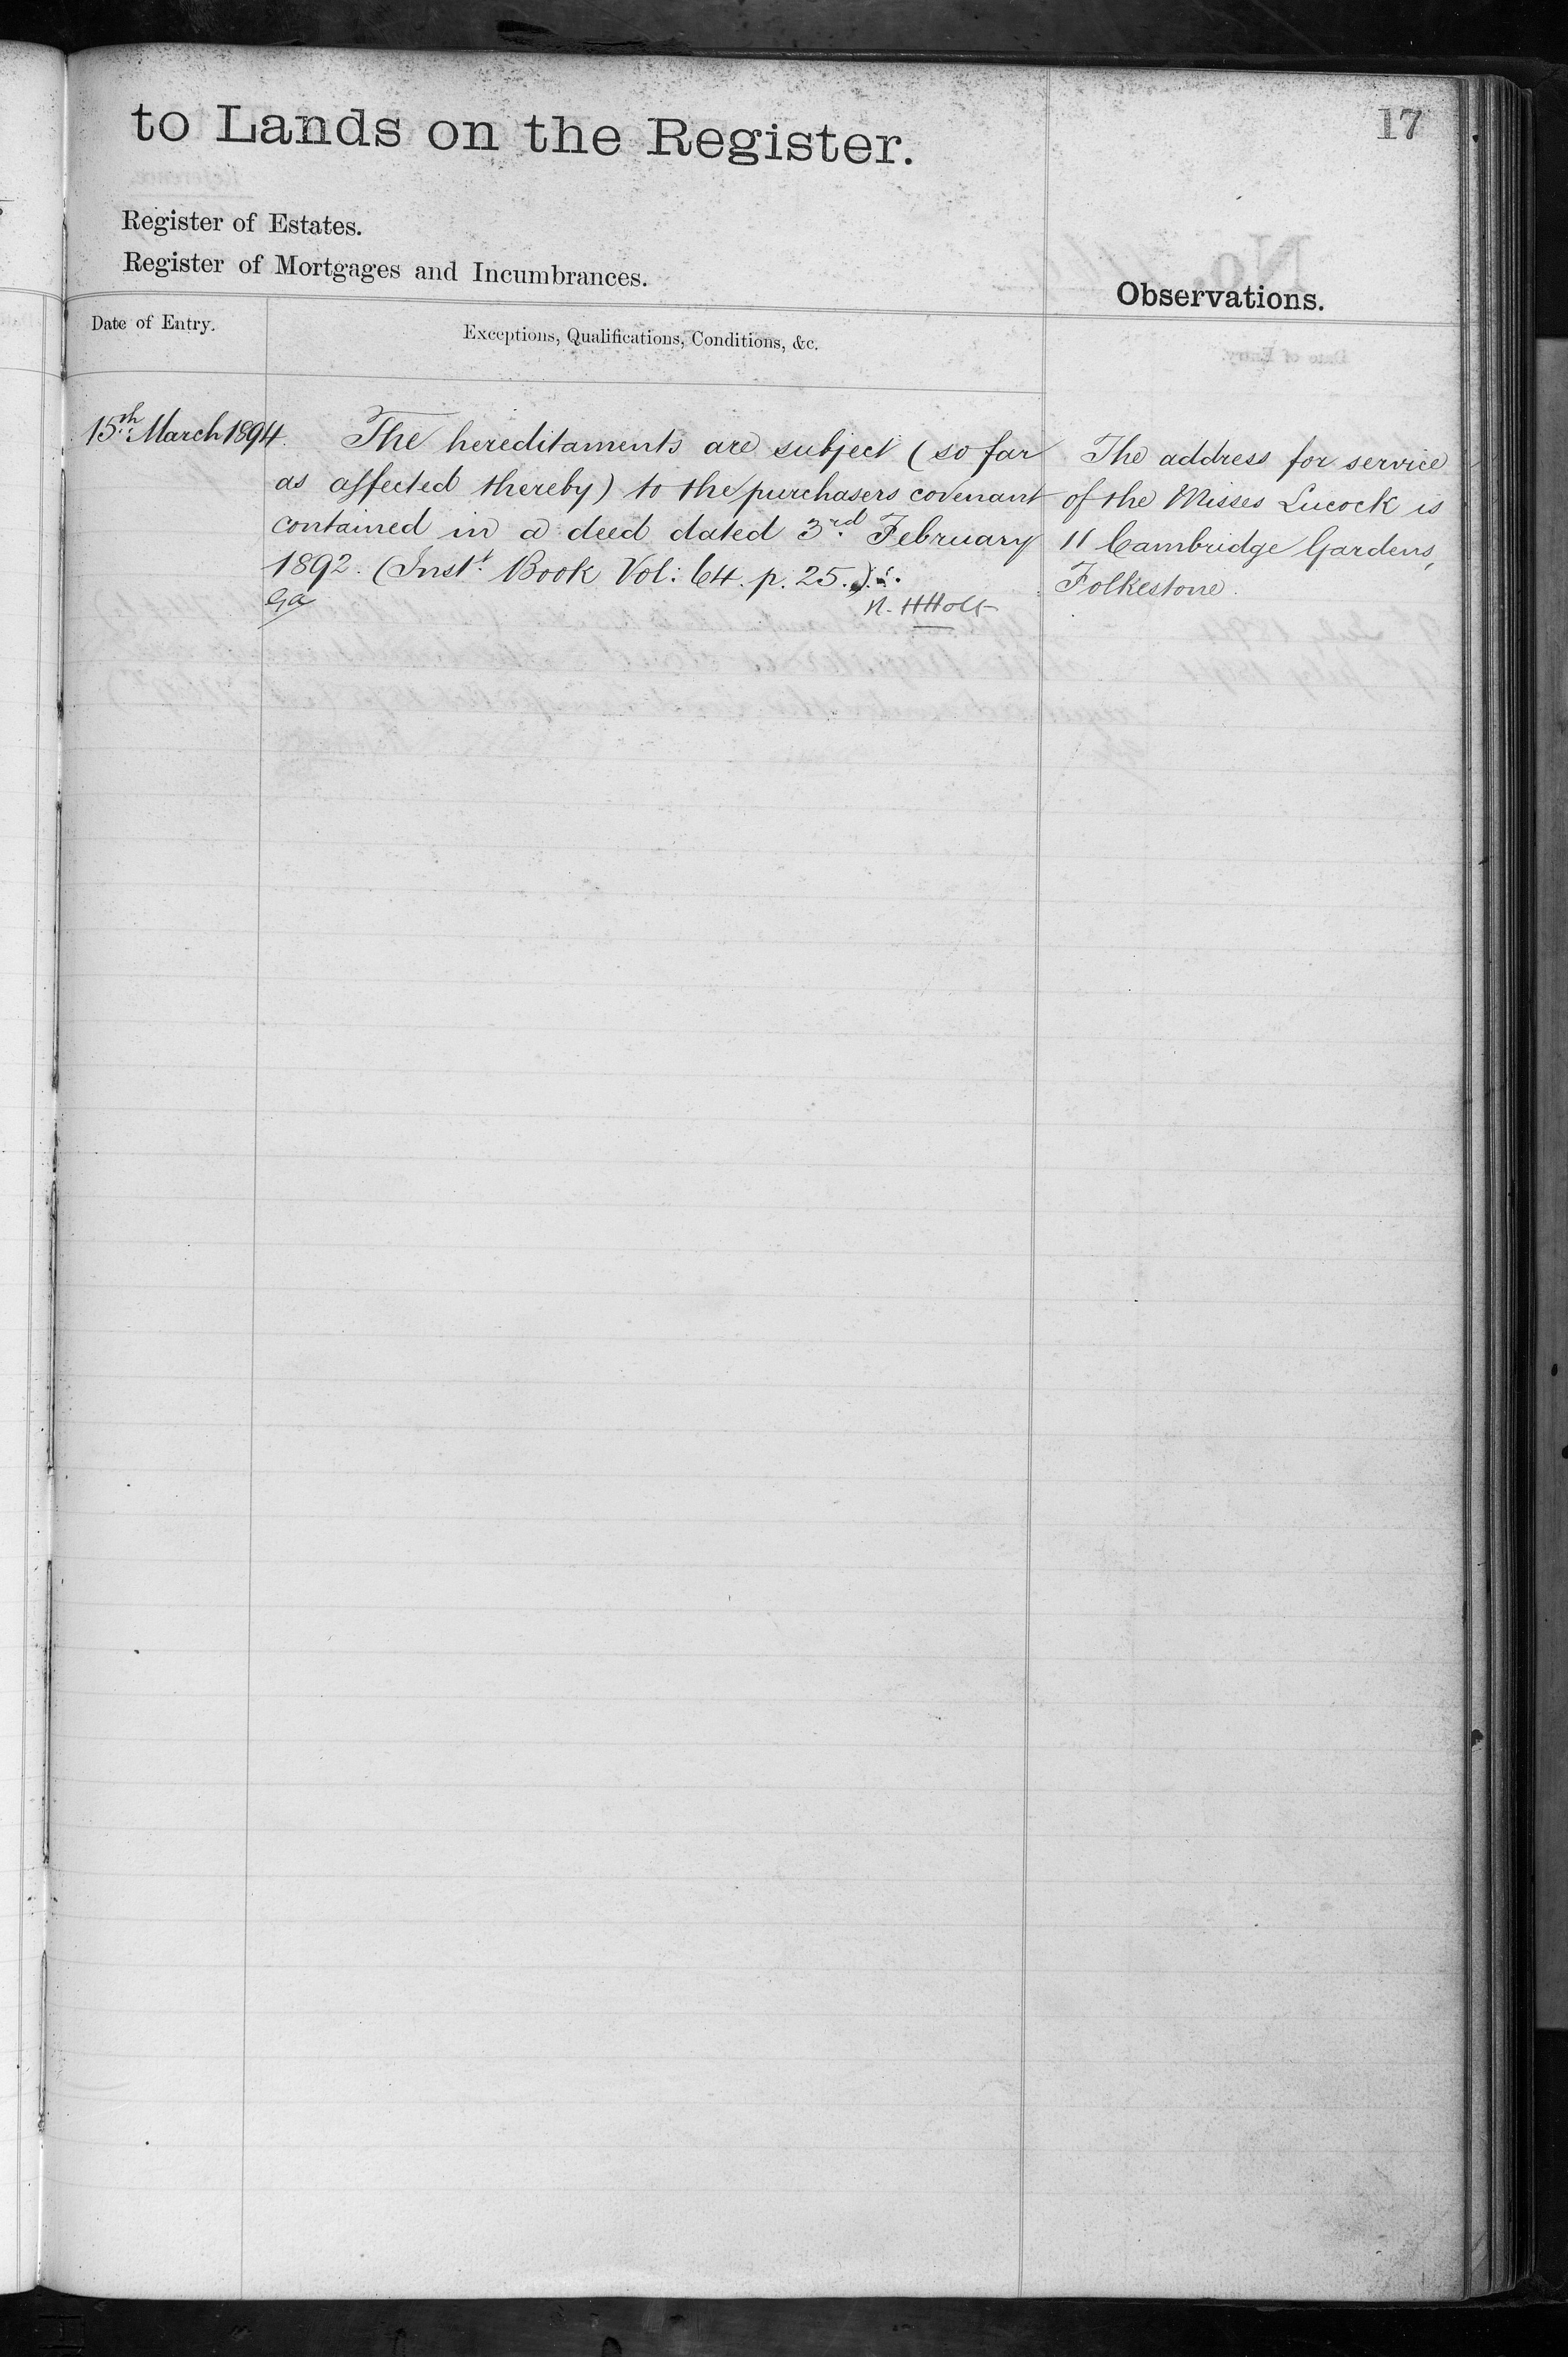 to Lands on the Register.
17
Register of Estates.
Register of Mortgages and Incumbrances.
Observations.
Date of Entry.
Exceptions, Qualifications, Conditions, &c.
15th March 1894.
The hereditaments are subject (so far
as affected thereby) to the purchasers covenant
contained in a deed dated 3rd February
1892. (Inst. Book Vol: 64. p. 25.)
Ga
N. H Holt
The address for service
of the Misses Lucock is
11 Cambridge Gardens,
Folkestone.